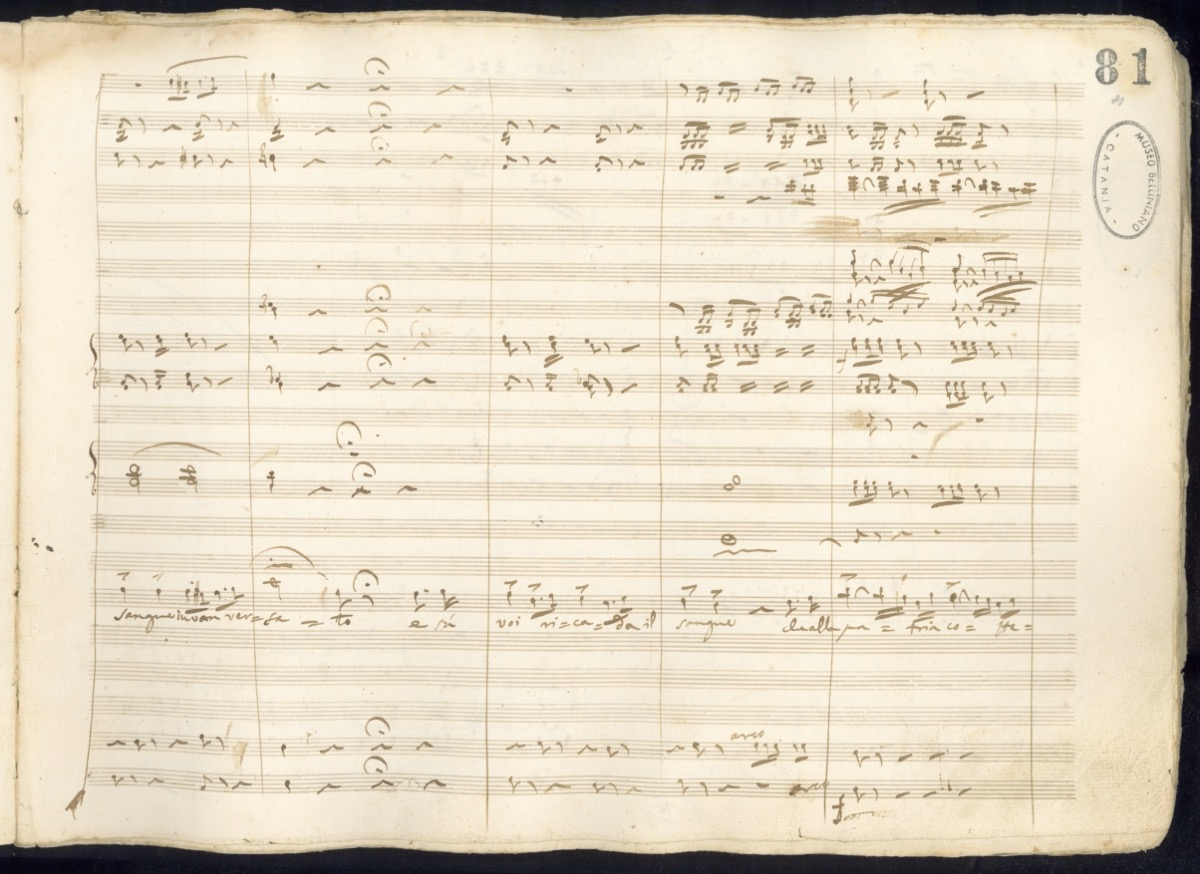 81
81
MUSEO BELLINIANO
- CATANIA -
sangue invan ver=sa = to e sù voi ri=ca=da il sangue de alla pa = tria co = ste =
arco
arco
f
f